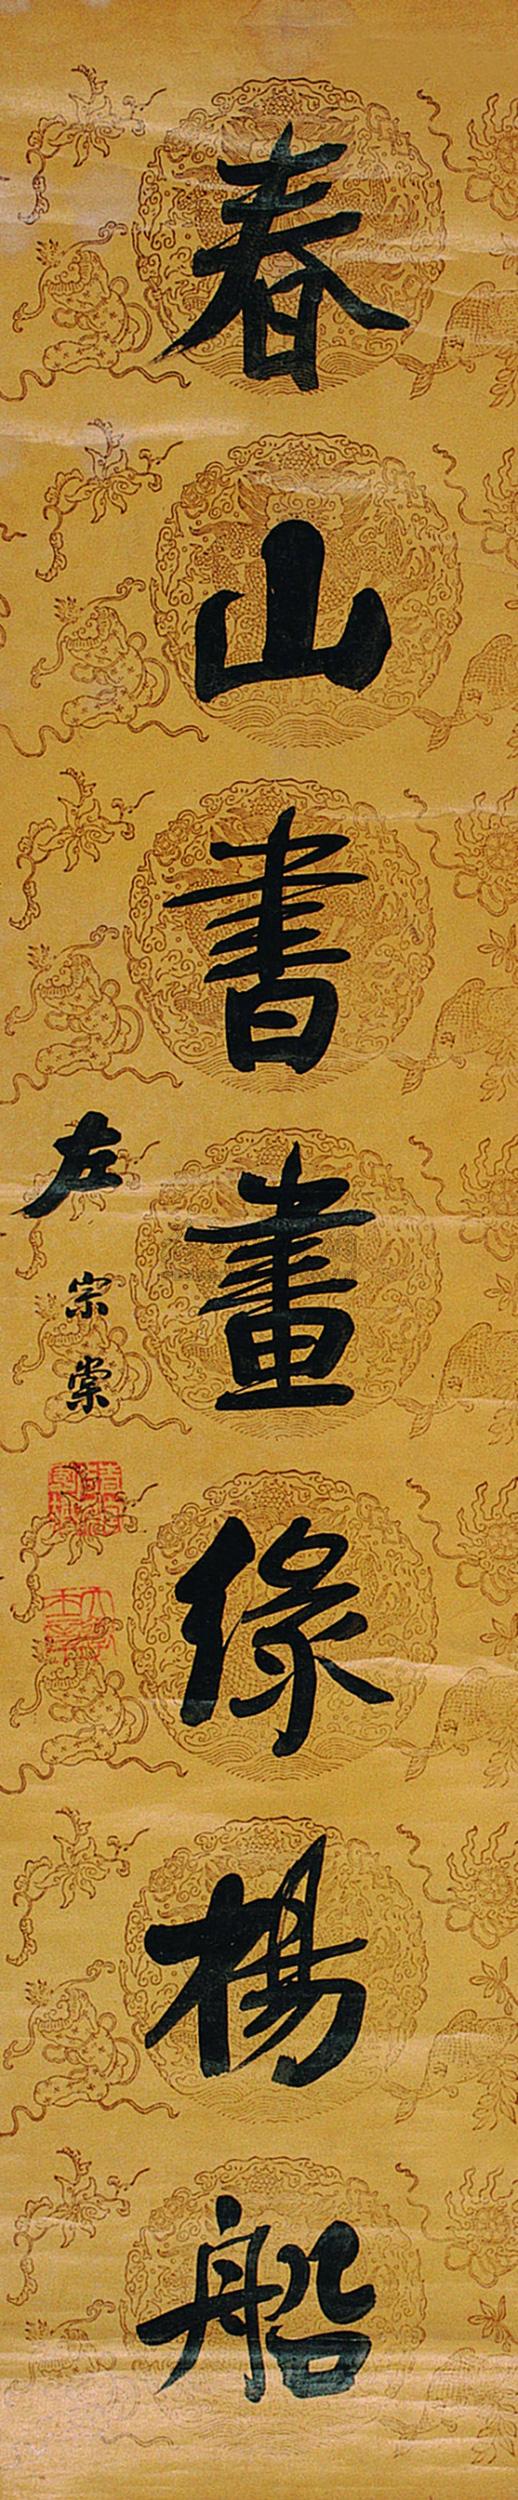 春山書畫緑楊船
左宗棠